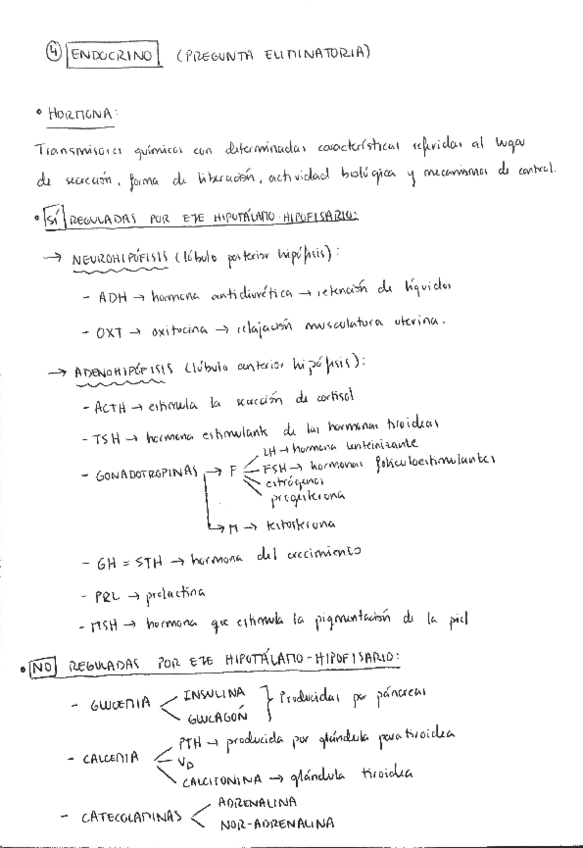 ④ ENDOCRINO (PREGUNTA ELIMINATORIA)
• HORMONA:
Transmisores químicos con determinadas características referidas al lugar
de secreción, forma de liberación, actividad biológica y mecanismos de control.
• SÍ REGULADAS POR EJE HIPOTÁLAMO-HIPOFISARIO:
→ NEUROHIPÓFISIS (lóbulo posterior hipófisis):
- ADH → hormona antidiurética → retención de líquidos
- OXT → oxitocina → relajación musculatura uterina.
→ ADENOHIPÓFISIS (lóbulo anterior hipófisis):
- ACTH → estimula la secreción de cortisol
- TSH → hormona estimulante de las hormonas tiroideas
- GONADOTROPINAS → F
LH → hormona luteinizante
FSH → hormonas foliculoestimulantes
estrógenos
progesterona
→ M → testosterona
- GH = STH → hormona del crecimiento
- PRL → prolactina
- MSH → hormona que estimula la pigmentación de la piel
• NO REGULADAS POR EJE HIPOTÁLAMO-HIPOFISARIO:
- GLUCEMIA
INSULINA
GLUCAGÓN
} Producidas por páncreas
- CALCEMIA
PTH → producida por glándula paratiroidea
VD
CALCITONINA → glándula tiroidea
- CATECOLAMINAS
ADRENALINA
NOR-ADRENALINA